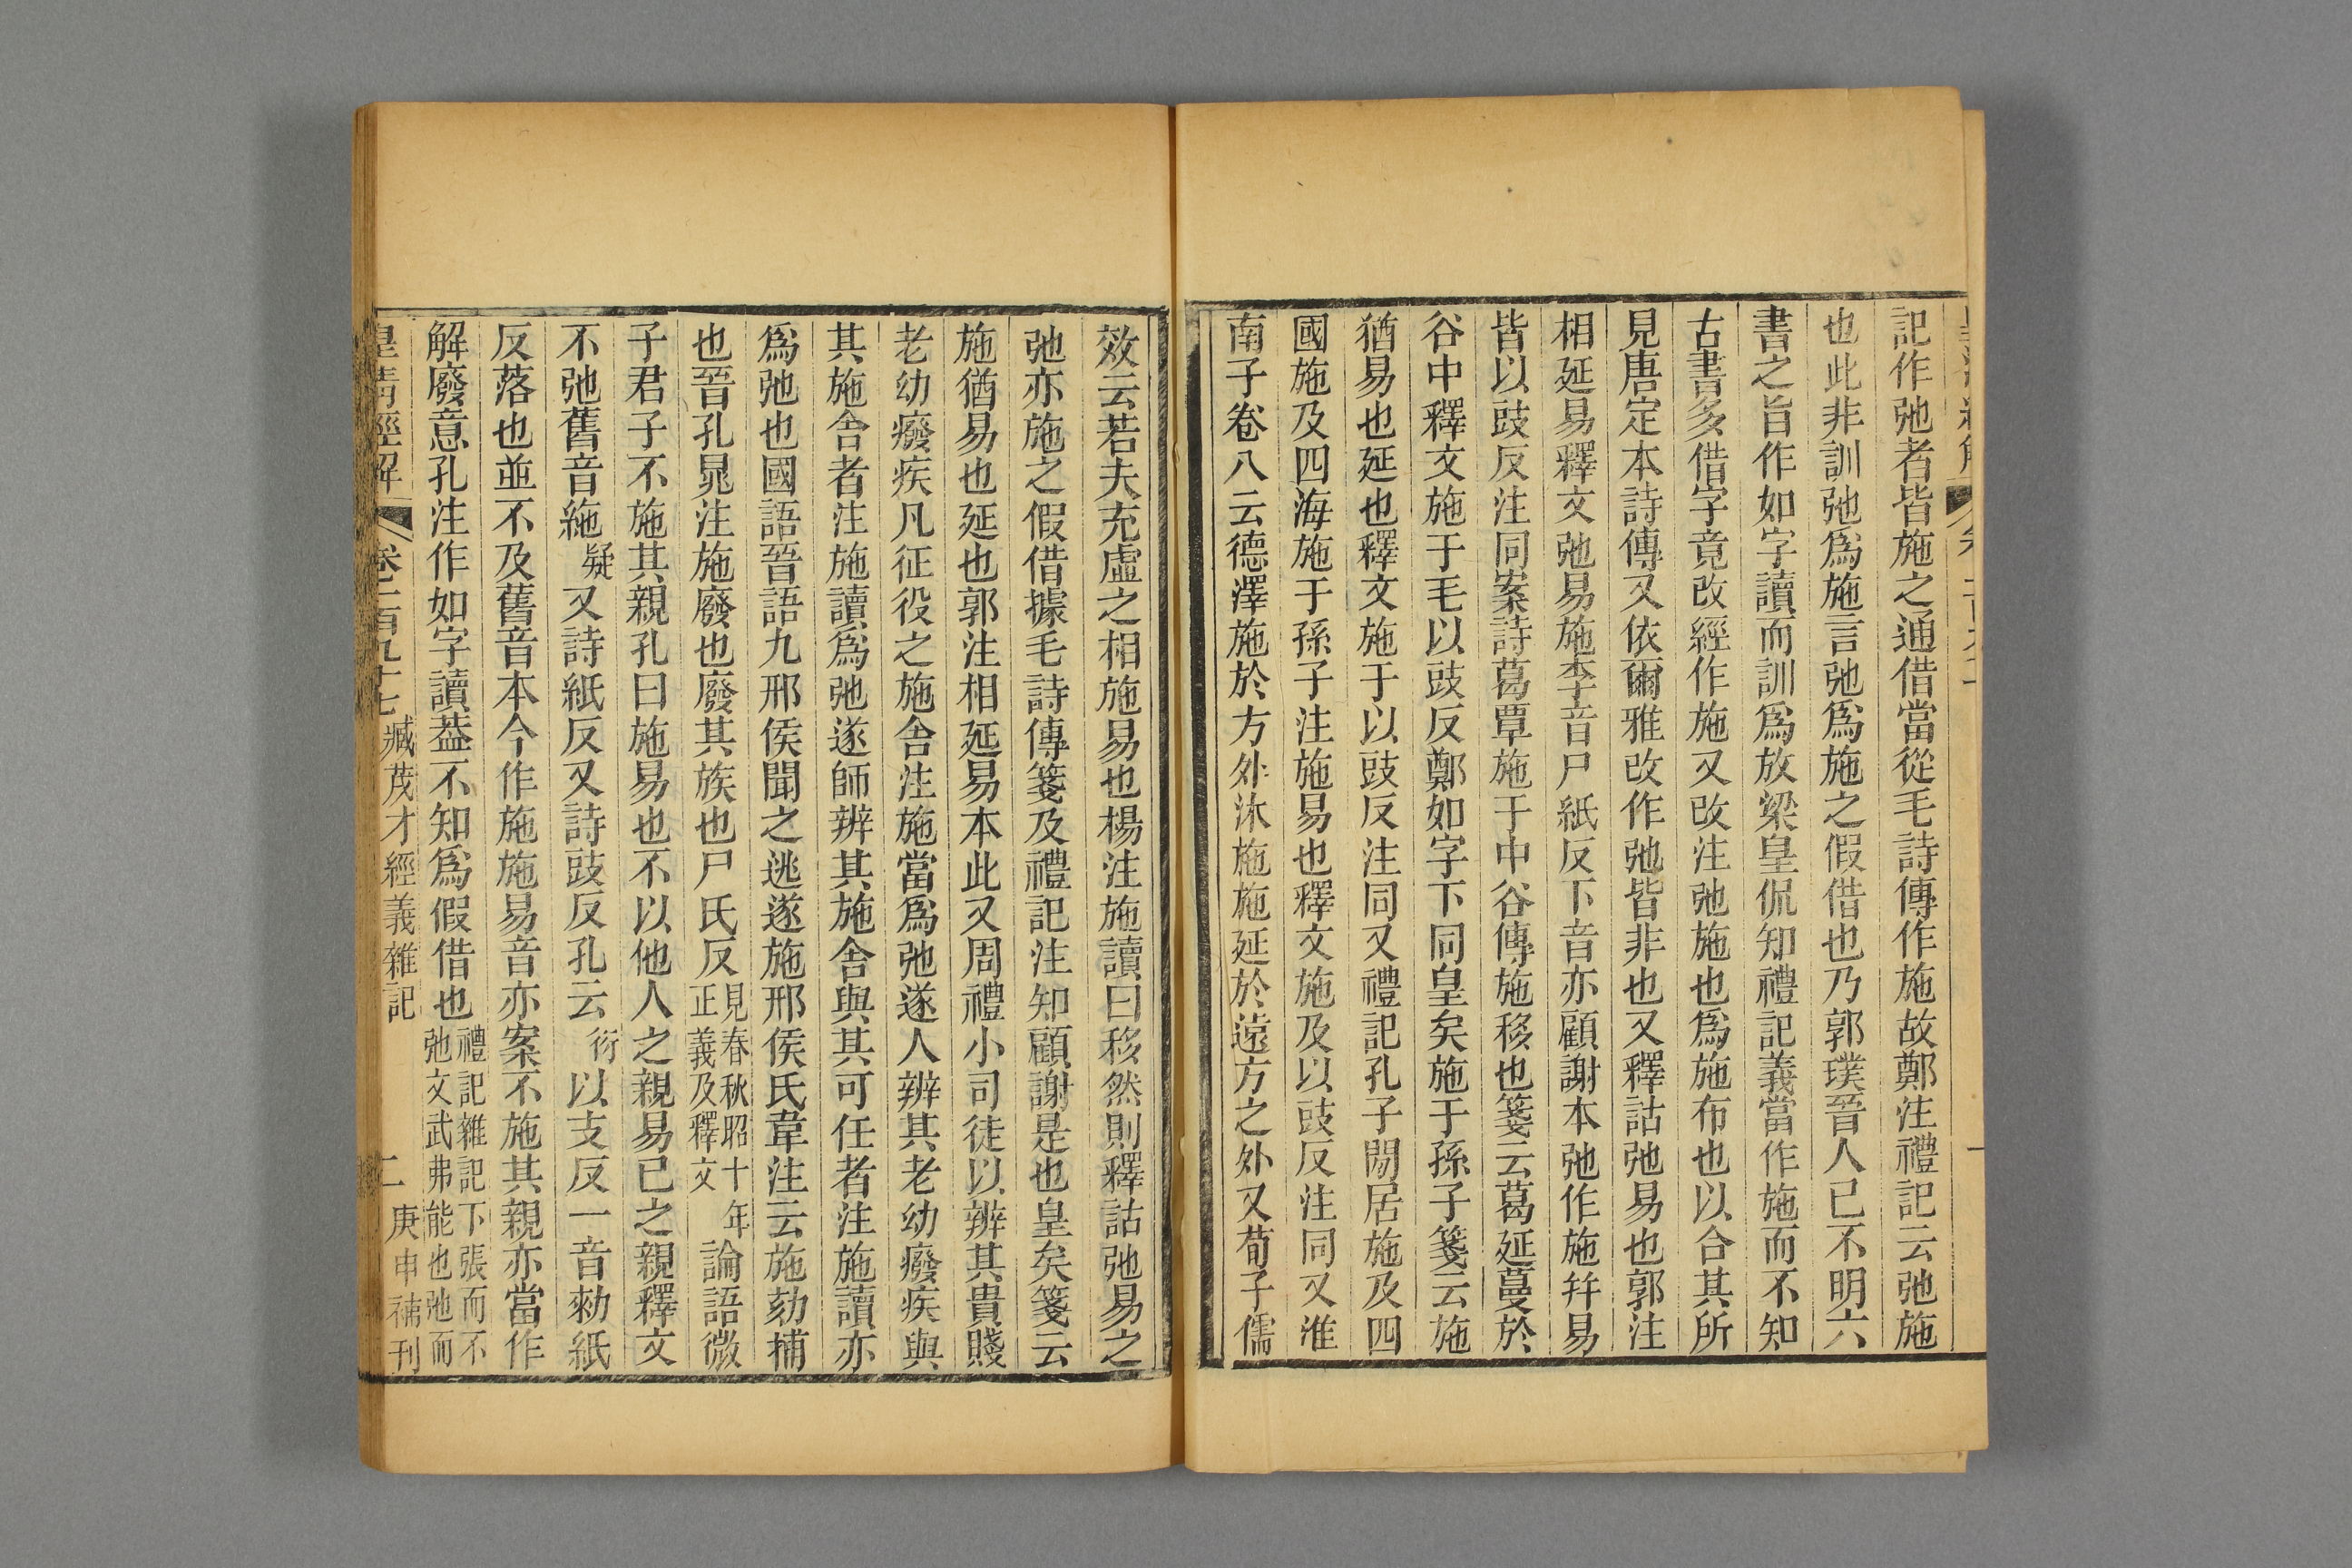 記作弛者皆施之通借當從毛詩傳作施故鄭注禮記云弛施
也此非訓弛爲施言弛爲施之假借也乃郭璞晉人已不明六
書之旨作如字讀而訓爲放梁皇侃知禮記義當作施而不知
古書多借字竟改經作施又改注弛施也爲施布也以合其所
見唐定本詩傳又依爾雅改作弛皆非也又釋詁弛易也郭注
相延易釋文弛易施李音尸紙反下音亦顧謝本弛作施幷易
皆以豉反注同案詩葛覃施于中谷傳施移也箋云葛延蔓於
谷中釋文施于毛以豉反鄭如字下同皇矣施于孫子箋云施
猶易也延也釋文施于以豉反注同又禮記孔子閒居施及四
國施及四海施于孫子注施易也釋文施及以豉反注同又淮
南子卷八云德澤施於方外沐施施延於遠方之外又荀子儒
效云若夫充虛之相施易也楊注施讀曰移然則釋詁弛易之
弛亦施之假借據毛詩傳箋及禮記注知顧謝是也皇矣箋云
施猶易也延也郭注相延易本此又周禮小司徒以辨其貴賤
老幼癈疾凡征役之施舍注施當爲弛遂人辨其老幼癈疾與
其施舍者注施讀爲弛遂師辨其施舍與其可任者注施讀亦
爲弛也國語晉語九邢侯聞之逃遂施邢侯氏韋注云施劾捕
也晉孔晁注施廢也廢其族也尸氏反見春秋昭十年正義及釋文論語微
子君子不施其親孔曰施易也不以他人之親易己之親釋文
不弛舊音絁疑又詩紙反又詩豉反孔云衍以支反一音勑紙
反落也並不及舊音本今作施施易音亦案不施其親亦當作
解廢意孔注作如字讀葢不知爲假借也禮記雜記下張而不弛文武弗能也弛而
皇清經解 卷二百九十七 臧茂才經義雜記 二 庚申補刊